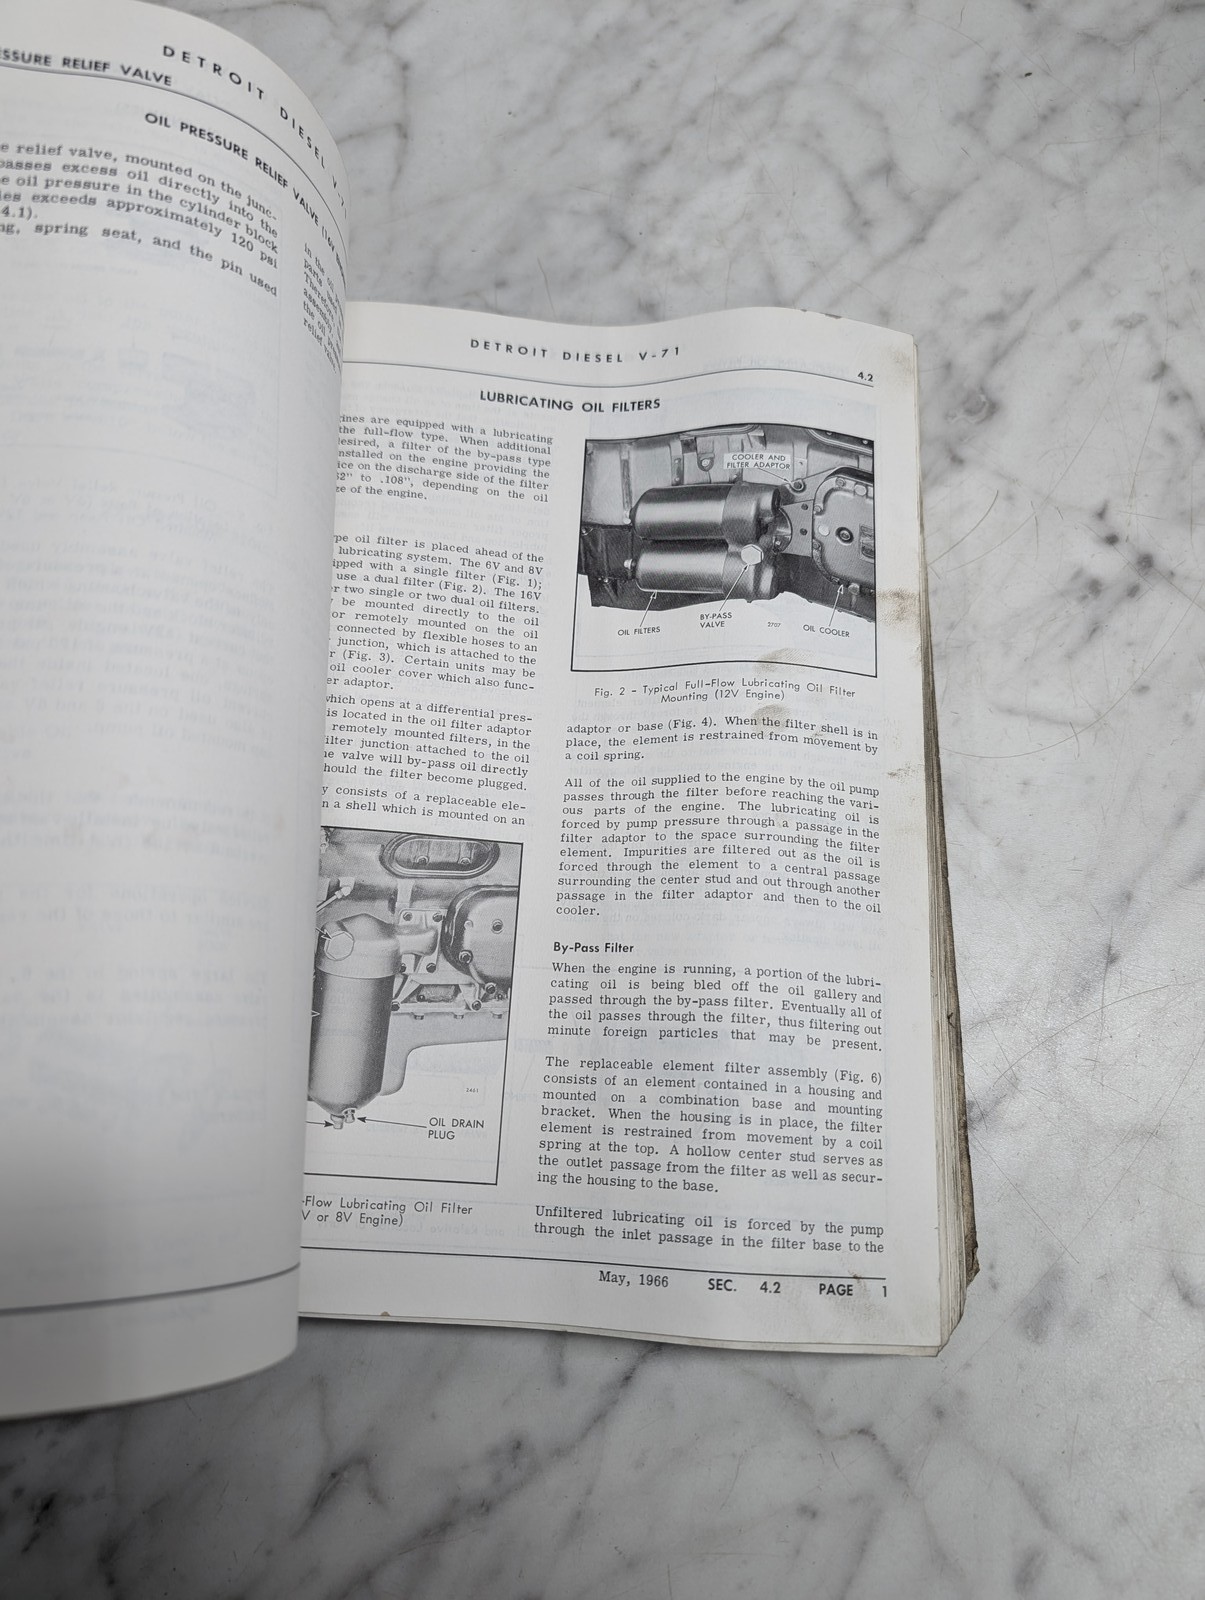 DETROIT DIESEL V-71
SSURE RELIEF VALVE
OIL PRESSURE RELIEF VALVE (16V
e relief valve, mounted on the junc-
passes excess oil directly into the
e oil pressure in the cylinder block
ies exceeds approximately 120 psi
4.1).
ng, spring seat, and the pin used
in the oil
DETROIT DIESEL V-71
4.2
LUBRICATING OIL FILTERS
gines are equipped with a lubricating
the full-flow type. When additional
desired, a filter of the by-pass type
installed on the engine providing the
ice on the discharge side of the filter
to .108", depending on the oil
ze of the engine.
ype oil filter is placed ahead of the
lubricating system. The 6V and 8V
ipped with a single filter (Fig. 1);
use a dual filter (Fig. 2). The 16V
r two single or two dual oil filters.
be mounted directly to the oil
or remotely mounted on the oil
connected by flexible hoses to an
junction, which is attached to the
r (Fig. 3). Certain units may be
oil cooler cover which also func-
er adaptor.
which opens at a differential pres-
is located in the oil filter adaptor
remotely mounted filters, in the
filter junction attached to the oil
he valve will by-pass oil directly
hould the filter become plugged.
y consists of a replaceable ele-
n a shell which is mounted on an
2461
OIL DRAIN
PLUG
-Flow Lubricating Oil Filter
V or 8V Engine)
COOLER AND
FILTER ADAPTOR
OIL FILTERS
BY-PASS
VALVE
2707
OIL COOLER
Fig. 2 - Typical Full-Flow Lubricating Oil Filter
Mounting (12V Engine)
adaptor or base (Fig. 4). When the filter shell is in
place, the element is restrained from movement by
a coil spring.
All of the oil supplied to the engine by the oil pump
passes through the filter before reaching the vari-
ous parts of the engine. The lubricating oil is
forced by pump pressure through a passage in the
filter adaptor to the space surrounding the filter
element. Impurities are filtered out as the oil is
forced through the element to a central passage
surrounding the center stud and out through another
passage in the filter adaptor and then to the oil
cooler.
By-Pass Filter
When the engine is running, a portion of the lubri-
cating oil is being bled off the oil gallery and
passed through the by-pass filter. Eventually all of
the oil passes through the filter, thus filtering out
minute foreign particles that may be present.
The replaceable element filter assembly (Fig. 6)
consists of an element contained in a housing and
mounted on a combination base and mounting
bracket. When the housing is in place, the filter
element is restrained from movement by a coil
spring at the top. A hollow center stud serves as
the outlet passage from the filter as well as secur-
ing the housing to the base.
Unfiltered lubricating oil is forced by the pump
through the inlet passage in the filter base to the
May, 1966 SEC. 4.2 PAGE 1